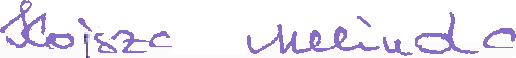 Kojsza Melinda